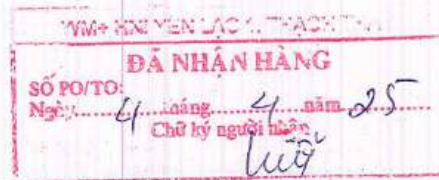 WM+ HNI YÊN LẠC 1, THẠCH THẤT
ĐÃ NHẬN HÀNG
SỐ PO/TO:
Ngày 4 tháng 4 năm 25
Chữ ký người nhận